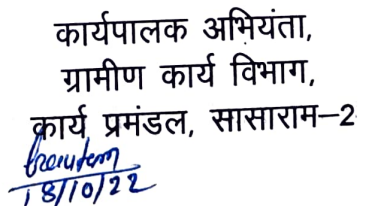 कार्यपालक अभियंता,
ग्रामीण कार्य विभाग,
कार्य प्रमंडल, सासाराम–2
18/10/22